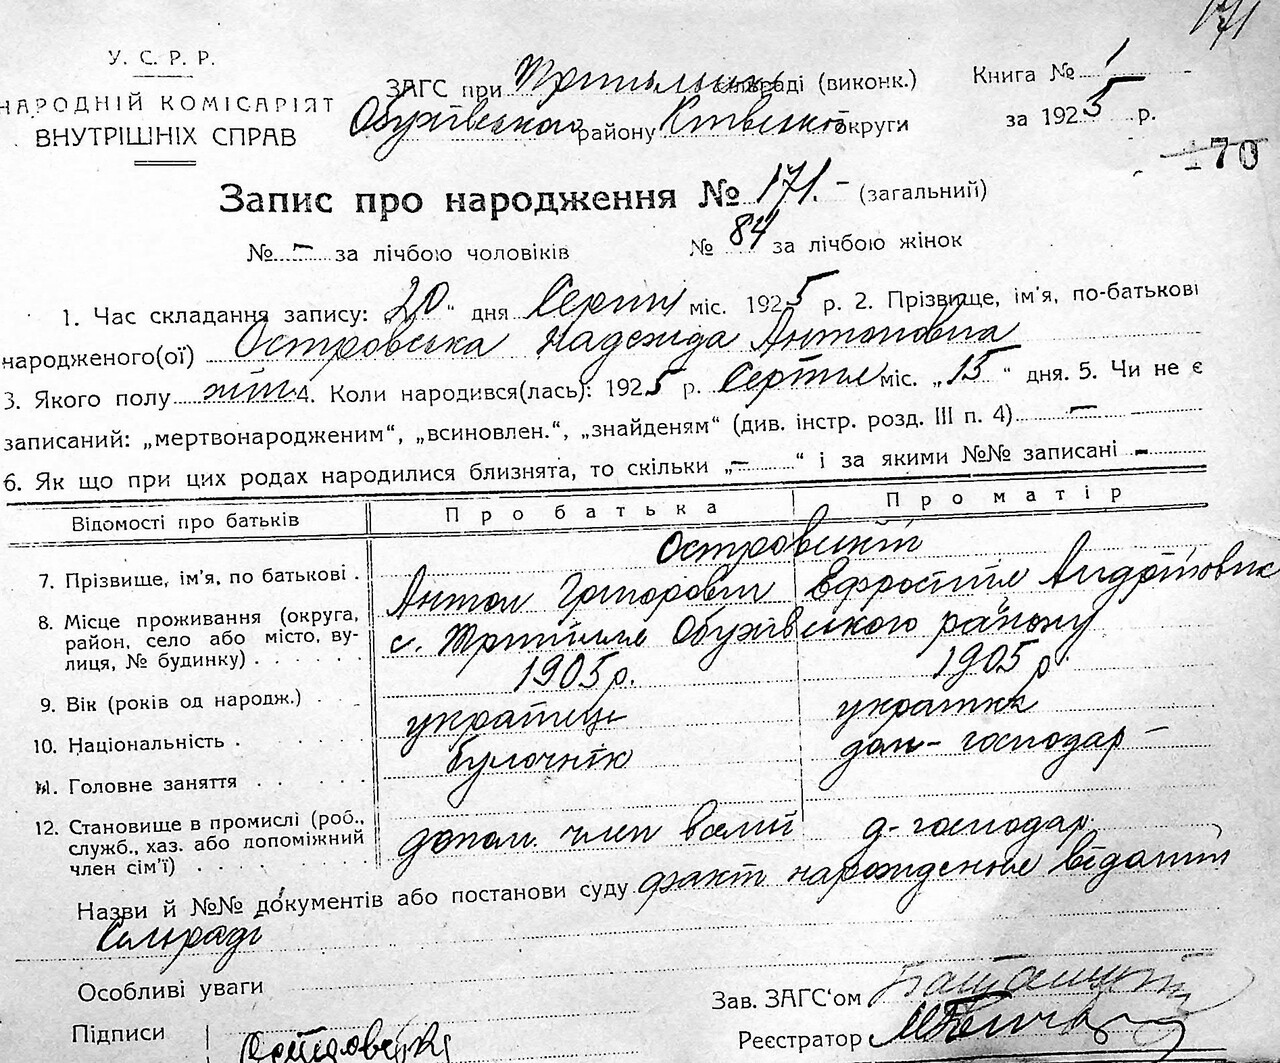 171
У. С. Р. Р.
НАРОДНІЙ КОМІСАРІЯТ
ВНУТРІШНІХ СПРАВ
ЗАГС при Трипільській сільраді (виконк.)
Обухівського району Київської округи
Книга № 1
за 1925 р.
170
Запис про народження № 171. - (загальний)
№ - за лічбою чоловіків № 84 за лічбою жінок
1. Час складання запису: „20“ дня Серпня міс. 1925 р. 2. Прізвище, ім'я, по-батькові
народженого(ої) Островська Надежида Антоновна
3. Якого полу жін 4. Коли народився(лась): 1925 р. Серпня міс. „15“ дня. 5. Чи не є
записаний: „мертвонародженим“, „всиновлен.“, „знайденям“ (див. інстр. розд. III п. 4) —
6. Як що при цих родах народилися близнята, то скільки „—“ і за якими №№ записані -
Відомості про батьків Про батька Про матір
Островські
7. Прізвище, ім'я, по батькові . Антон Григорович Ефросинія Андріївна
8. Місце проживання (округа,
район, село або місто, ву-
лиця, № будинку) . . . . . .
с. Трипілля Обухівського району
9. Вік (років од народж.) . . . 1905 р. 1905 р.
10. Національність . . . . . українець українк
11. Головне заняття . . . . булочник дом- господар -
12. Становище в промислі (роб.,
служб., хаз. або допоміжний
член сім'ї) . . . . . . .
допом. член д-господар
Назви й №№ документів або постанови суду факт народження відомий
Сельраді
Особливі уваги
Зав. ЗАГС'ом
Підписи
Реєстратор